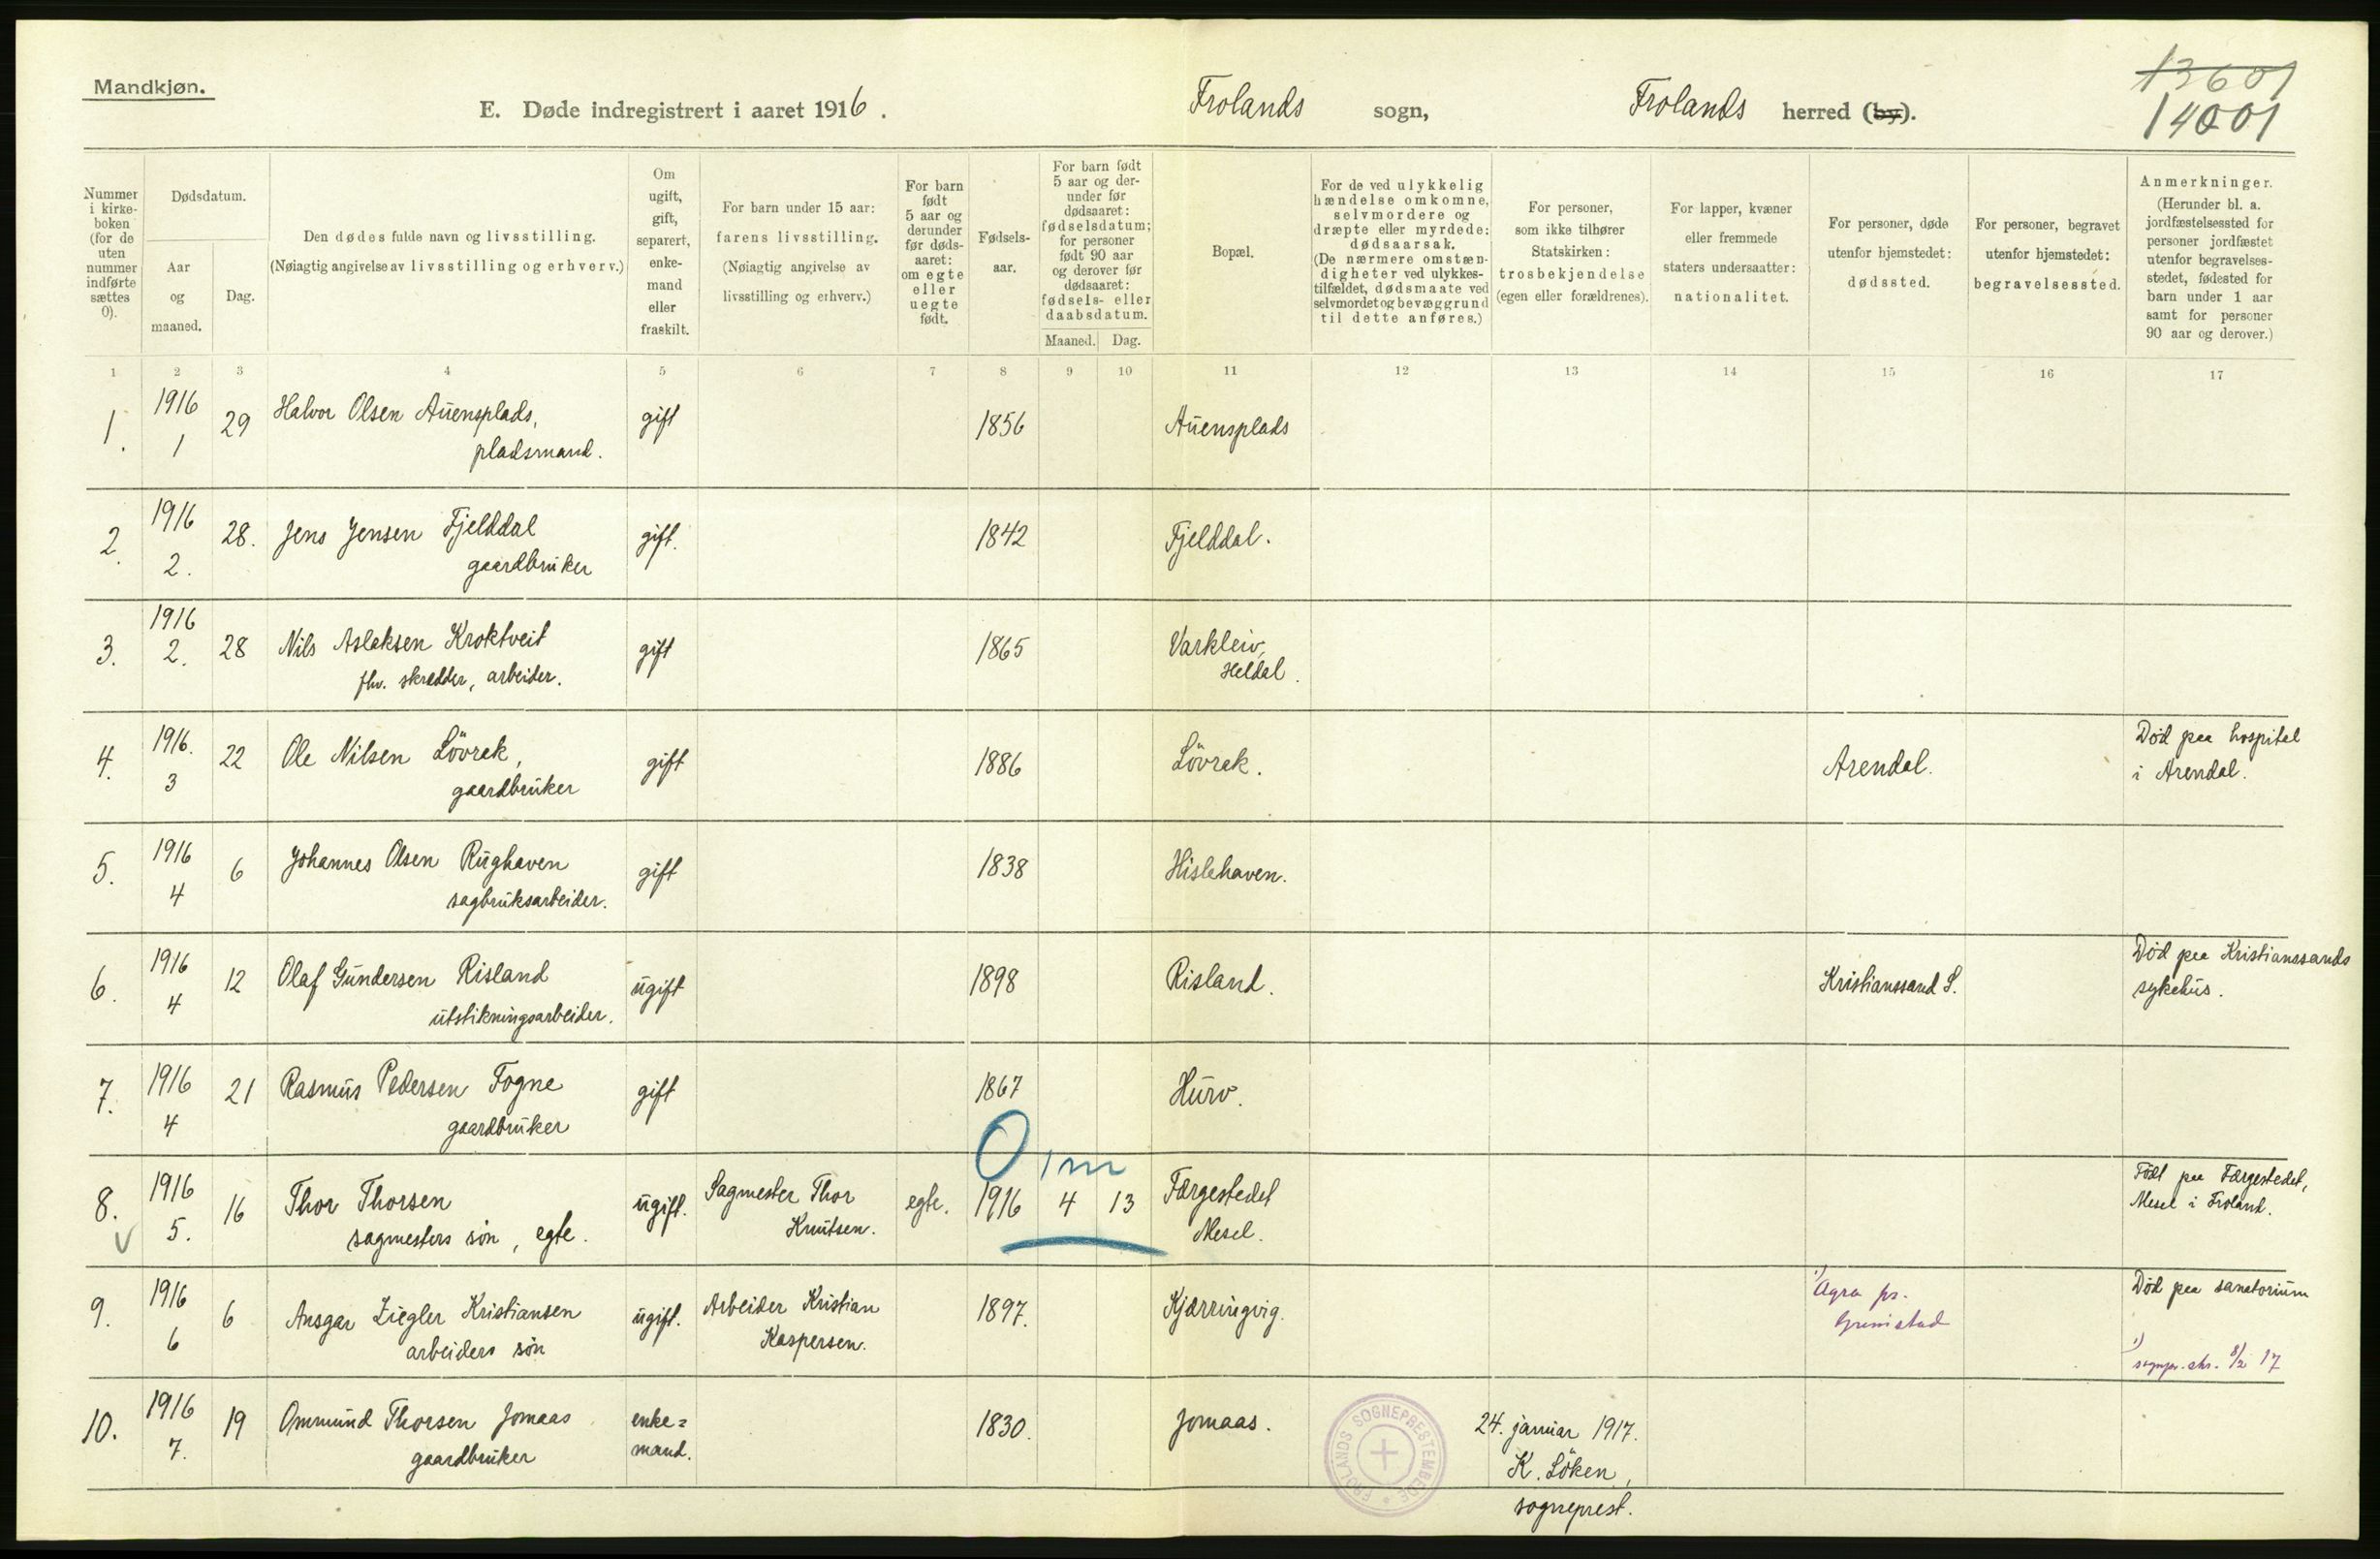 Mandkjøn.
E. Døde indregistrert i aaret 1916. Frolands sogn, Frolands herred (by).
13601
14001
Nummer i kirkeboken (for de uten nummer indførte sættes 0).
Dødsdatum.
Aar og maaned.
Dag.
Den dødes fulde navn og livsstilling.
(Nøiagtig angivelse av livsstilling og erhverv.)
Om ugift, gift, separert, enkemand eller fraskilt.
For barn under 15 aar:
farens livsstilling.
(Nøiagtig angivelse av
livsstilling og erhverv.)
For barn født 5 aar og derunder før dødsaaret: om egte eller uegte født.
Fødselsaar.
For barn født 5 aar og derunder før dødsaaret: fødselsdatum; for personer født 90 aar og derover før dødsaaret: fødsels- eller daabsdatum.
Maaned. Dag.
Bopæl.
For de ved ulykkelig hændelse omkomne, selvmordere og dræpte eller myrdede: dødsaarsak.
(De nærmere omstændigheter ved ulykkestilfældet, dødsmaate ved selvmordet og bevæggrund til dette anføres.)
For personer,
som ikke tilhører
Statskirken:
trosbekjendelse
(egen eller forældrenes).
For lapper, kvæner
eller fremmede
staters undersaatter:
nationalitet.
For personer, døde
utenfor hjemstedet:
dødssted.
For personer, begravet
utenfor hjemstedet:
begravelsessted.
Anmerkninger.
(Herunder bl. a.
jordfæstelsessted for
personer jordfæstet
utenfor begravelses-
stedet, fødested for
barn under 1 aar
samt for personer
90 aar og derover.)
1 2 3 4 5 6 7 8 9 10 11 12 13 14 15 16 17
1. 1916 1 29 Halvor Olsen Auensplads, gift 1856 Auensplads
pladsmand.
2. 1916 2. 28. Jens Jensen Fjelddal gift. 1842 Fjelddal.
gaardbruker
3. 1916 2. 28 Nils Aslaksen Kroktveit gift 1865 Varkleiv,
fhv. skrædder, arbeider. Heldal.
4. 1916. 3 22 Ole Nilsen Lövrak, gift 1886 Lövrak. Arendal. Död paa hospital
gaardbruker i Arendal.
5. 1916 4 6 Johannes Olsen Rughaven gift 1838 Hislehaven.
sagbruksarbeider.
6. 1916 4 12 Olaf Gundersen Risland ugift 1898 Risland. Kristianssand S. Död paa Kristianssands
utstikningsarbeider. sykehus.
7. 1916 4 21 Rasmus Pedersen Fogne gift 1867 Hurv.
gaardbruker
0, m
8. 1916 5. 16 Thor Thorsen ugift. Sagmester Thor egte. 1916 4 13 Færgestedet Födt paa Færgestedet,
sagmesters sön, egte. Knutsen. Mesel. Mesel i Froland.
9. 1916 6 6 Ansgar Ziegler Kristiansen ugift. Arbeider Kristian 1897. Kjærringvig. 1) Agra pr. Död paa sanatorium
arbeiders sön Kaspersen. Grimstad
1) sognpr. skr. 8/2 17
10. 1916 7. 19 Ommund Thorsen Jomaas enke= 1830. Jomaas.
gaardbruker mand.
FROLANDS SOGNEPRESTEMBEDE
24. januar 1917.
K. Löken,
sogneprest.